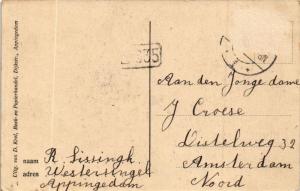 Uitg. van D. Kral, Boek- en Papierhandel, Dijkstr., Appingedam
naam R. Sissingh.
adres Westersingel
Appingedam
Aan den Jonge dame
J Croese
Distelweg 32
Amsterdam
Noord